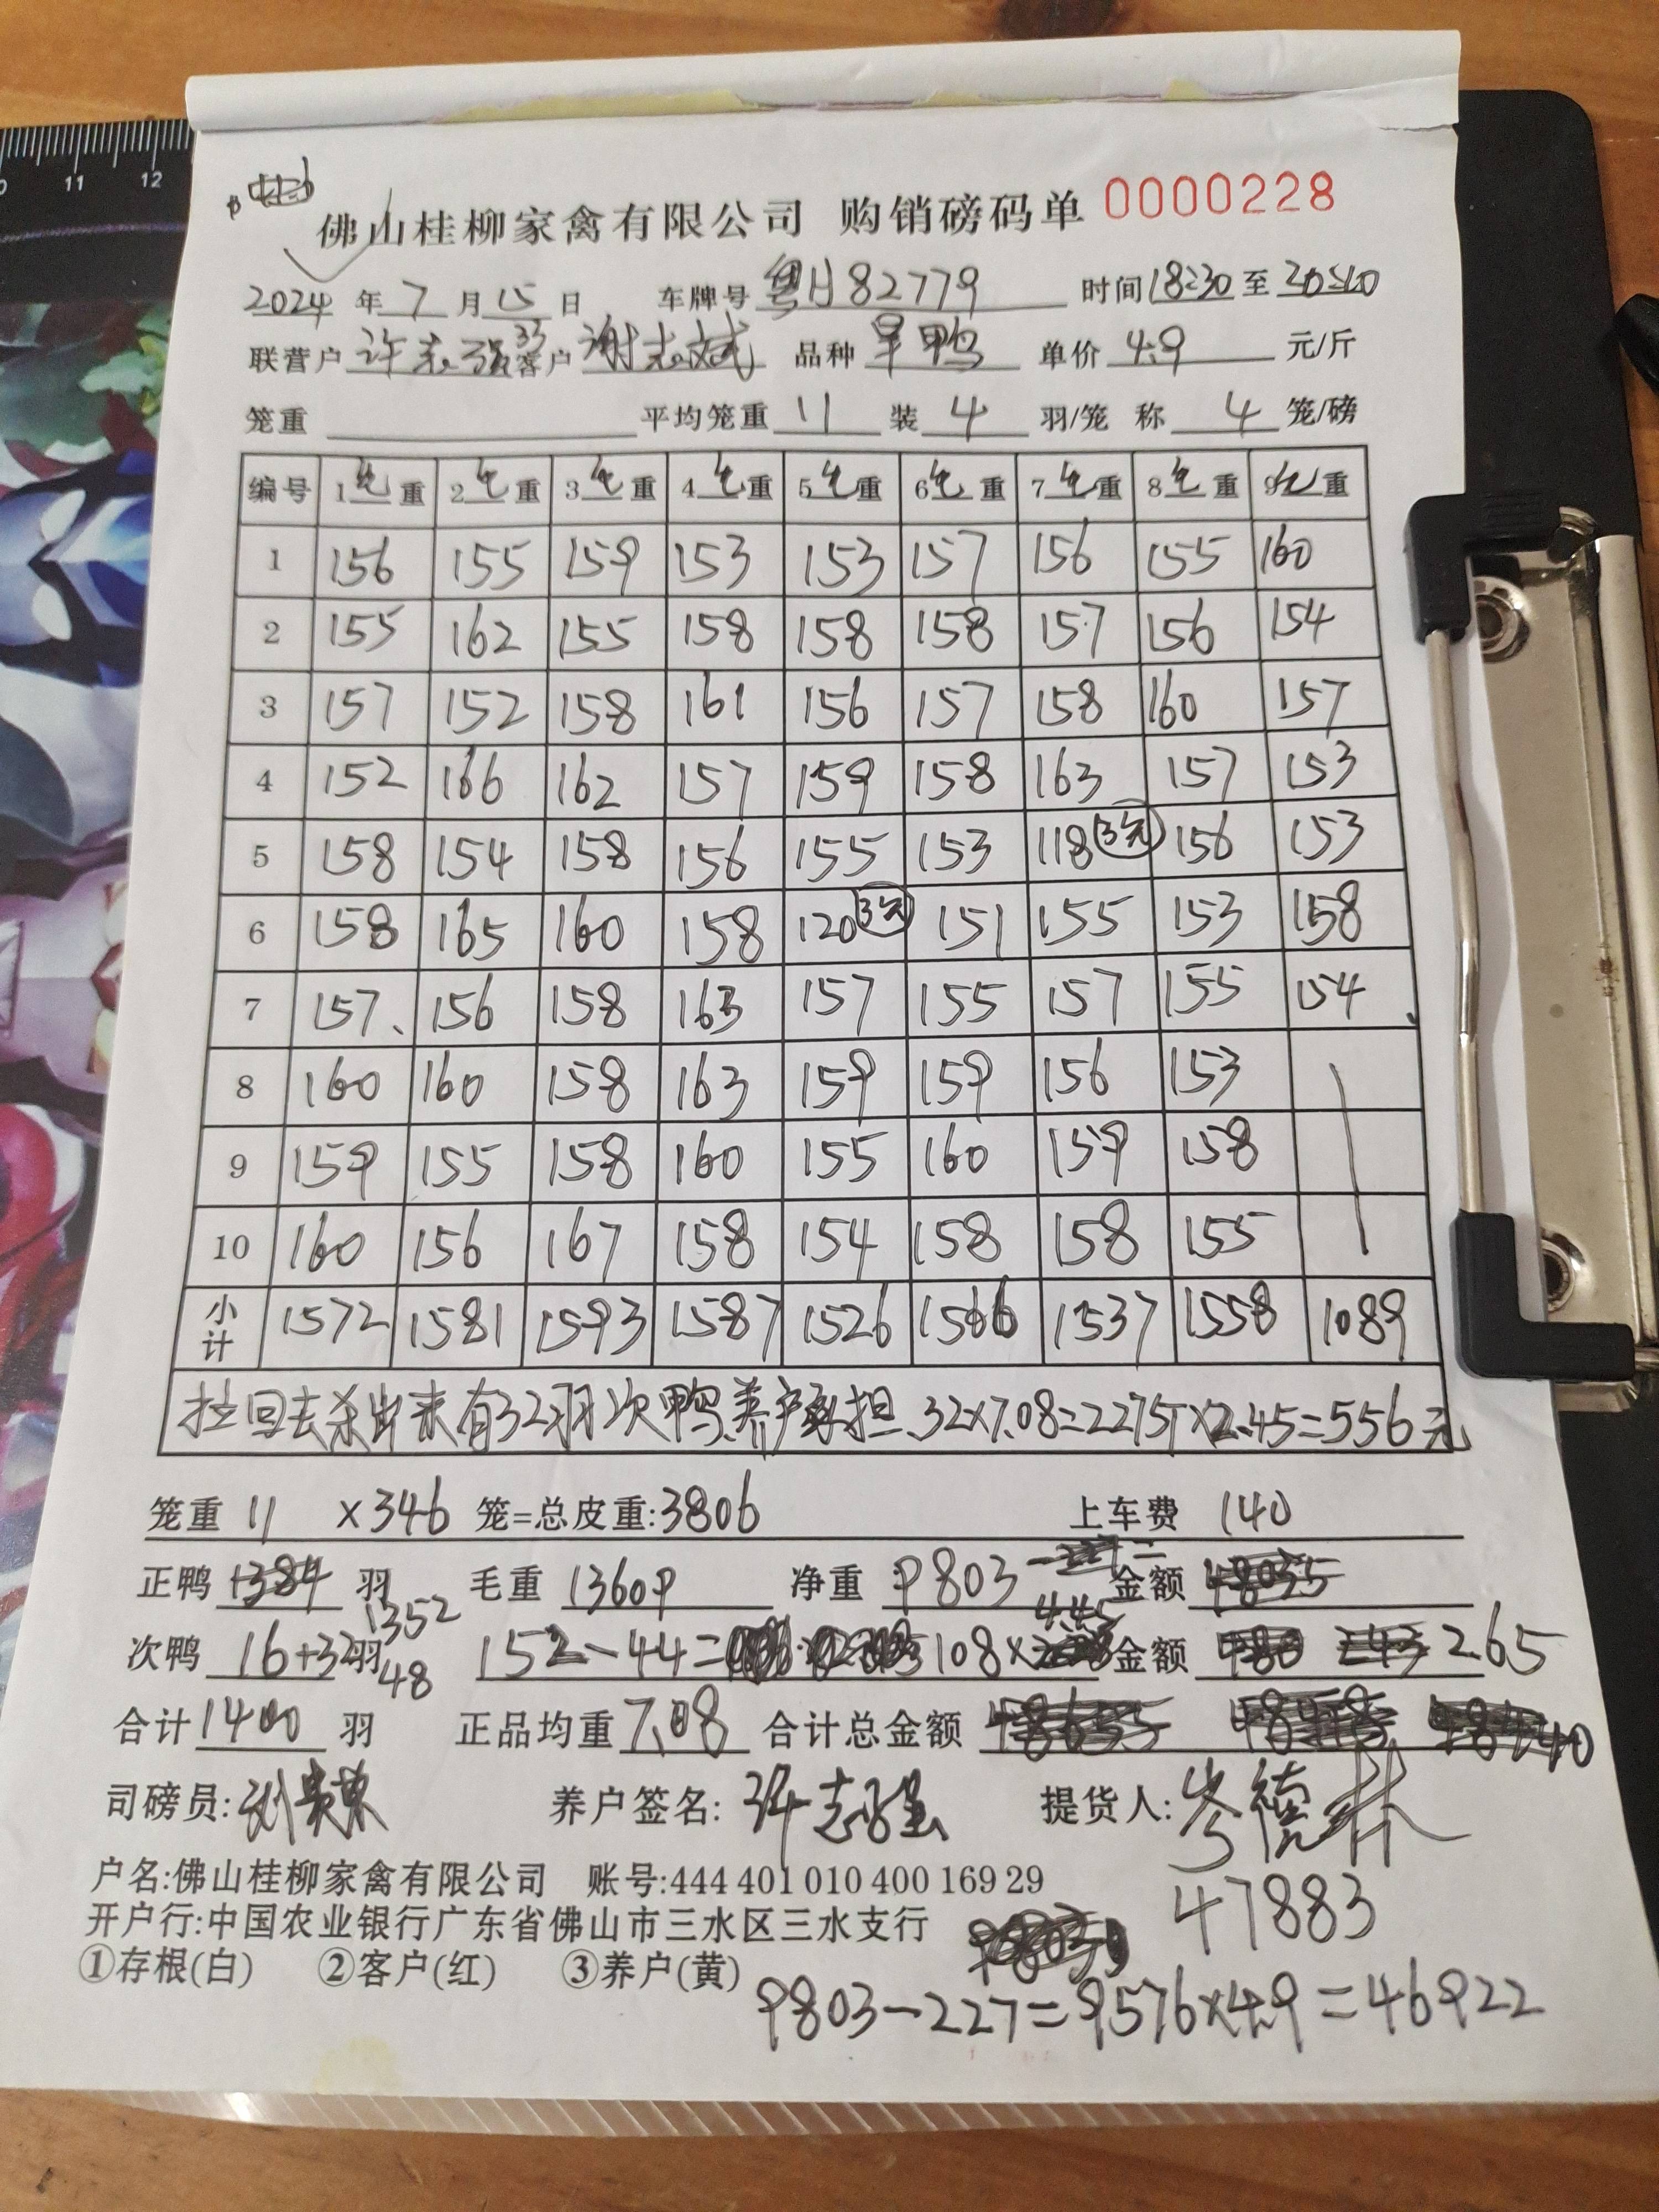 11 12
佛山桂柳家禽有限公司 购销磅码单 0000228
2024年7月15日 车牌号 粤H82779 时间18:30至20:10
联营户 许志强33 客户 谢志斌 品种 旱鸭 单价 4.9 元/斤
笼重 平均笼重 11 装 4 羽/笼 称 4 笼/磅
编号 1毛重 2毛重 3毛重 4毛重 5毛重 6毛重 7毛重 8毛重 9毛重
1 156 155 159 153 153 157 156 155 160
2 155 162 155 158 158 158 157 156 154
3 157 152 158 161 156 157 158 160 157
4 152 166 162 157 159 158 163 157 153
5 158 154 158 156 155 153 118 3元 156 153
6 158 165 160 158 120 3元 151 155 153 158
7 157、 156 158 163 157 155 157 155 154
8 160 160 158 163 159 159 156 153
9 159 155 158 160 155 160 159 158
10 160 156 167 158 154 158 158 155
小计 1572 1581 1593 1587 1526 1566 1537 1558 1089
拉回去杀出来有32羽次鸭,养户承担.32×7.08=227斤×2.45=556元
笼重 11 ×346 笼=总皮重:3806 上车费 140
正鸭 1384 羽 1352 毛重 13609 净重 9803 金额 48035
次鸭 16+32羽 48 152-44= 108× 4.45 金额 265
合计 1400 羽 正品均重 7.08 合计总金额 48655
司磅员: 养户签名: 许志强 提货人: 岑德林
户名:佛山桂柳家禽有限公司 账号:444 401 010 400 169 29
47883
开户行:中国农业银行广东省佛山市三水区三水支行
①存根(白) ②客户(红) ③养户(黄)
9803-227=9576×4.9=46922